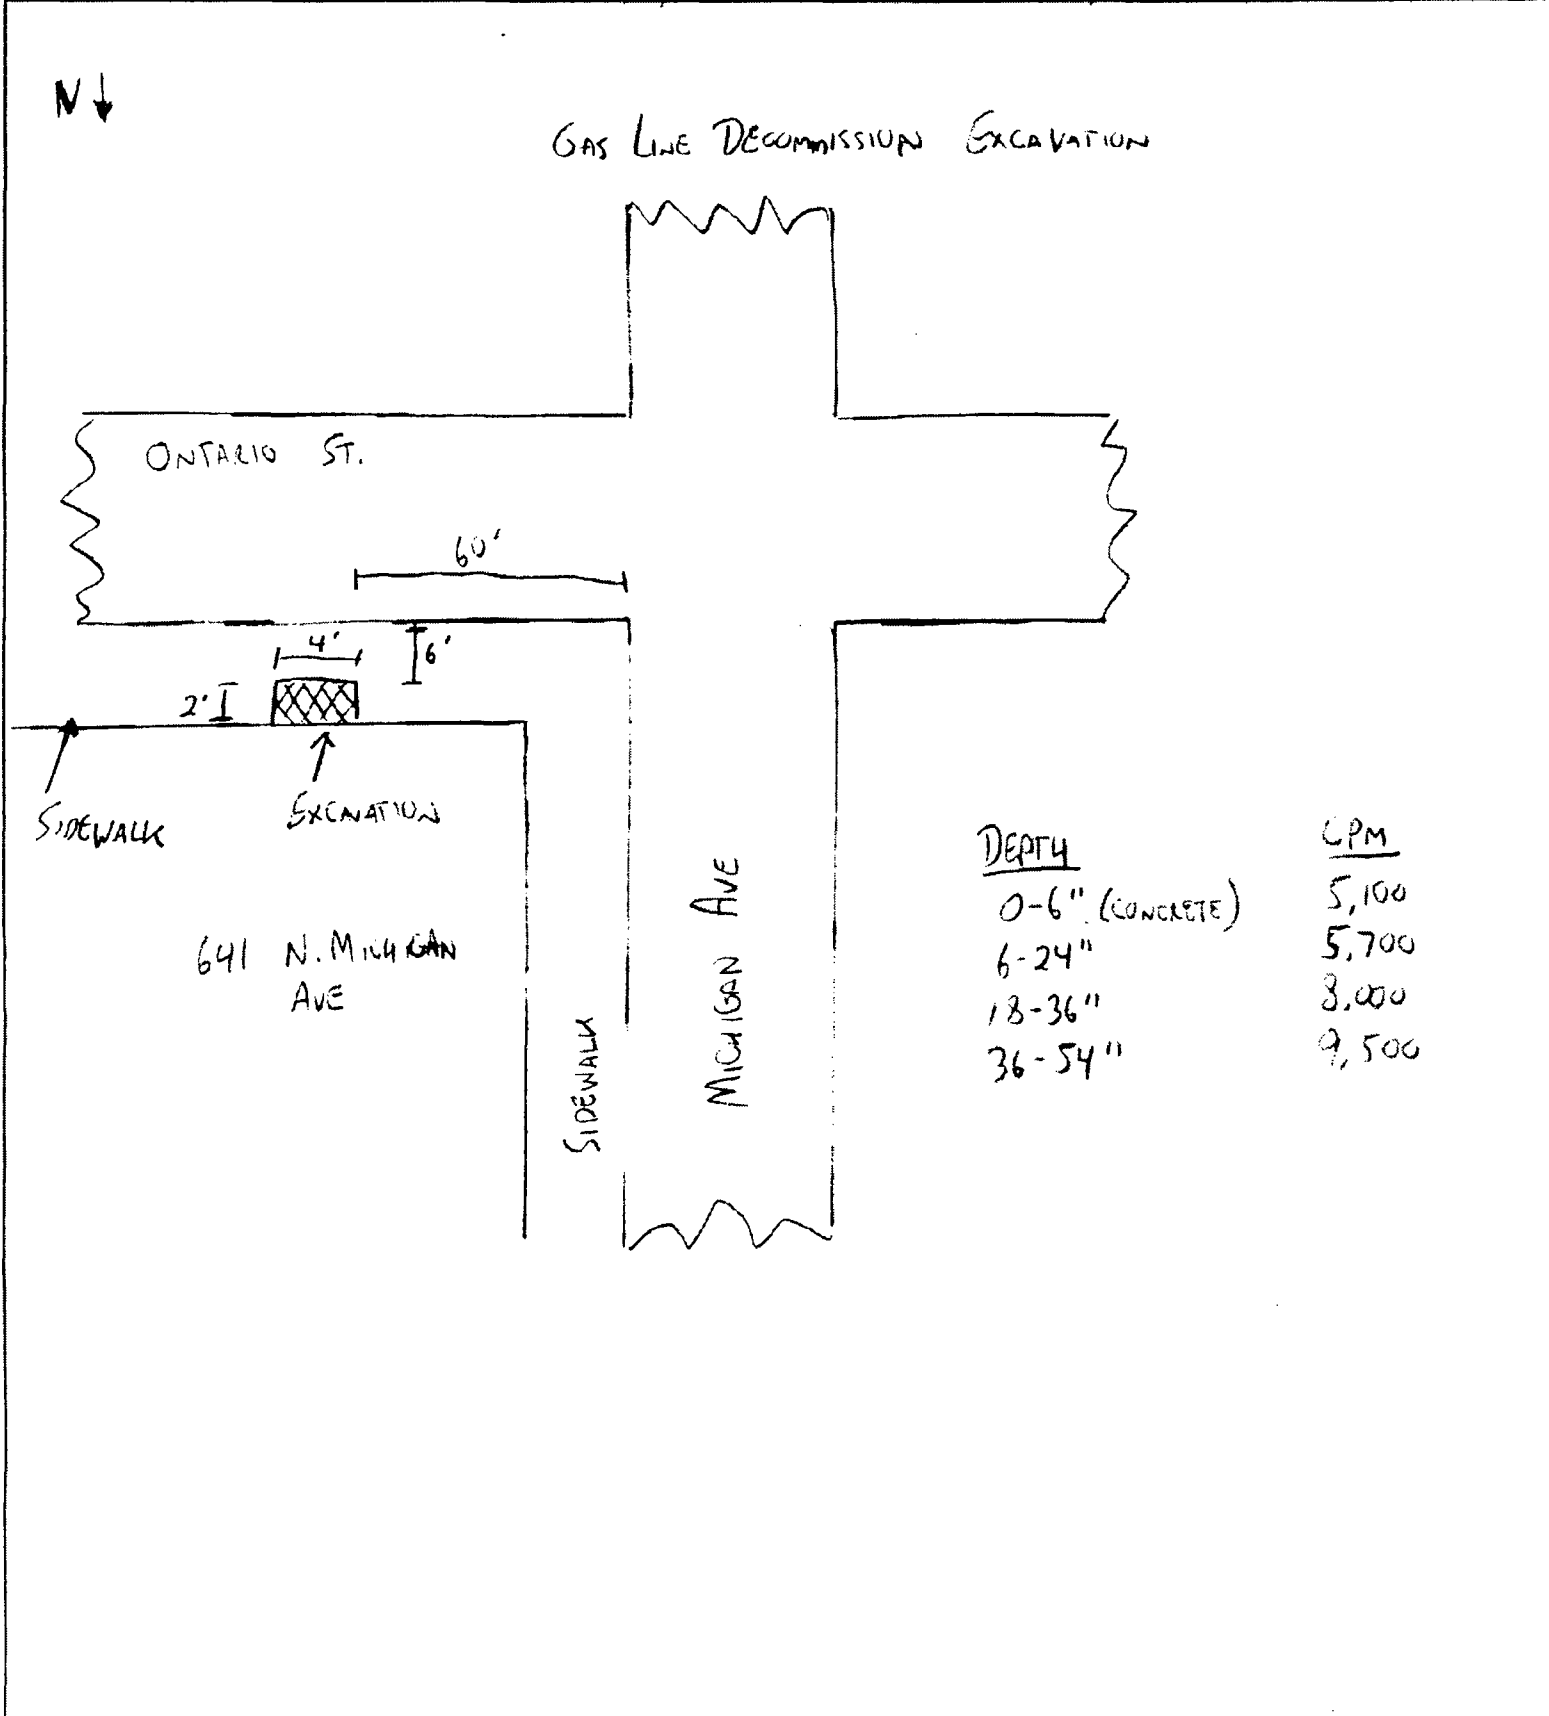 N
GAS LINE DECOMMISSION EXCAVATION
ONTARIO ST.
60'
4'
6'
2'
SIDEWALK
EXCAVATION
641 N. MICHIGAN
AVE
SIDEWALK
MICHIGAN AVE
DEPTH CPM
0-6" (CONCRETE) 5,100
6-24" 5,700
18-36" 8,000
36-54" 9,500